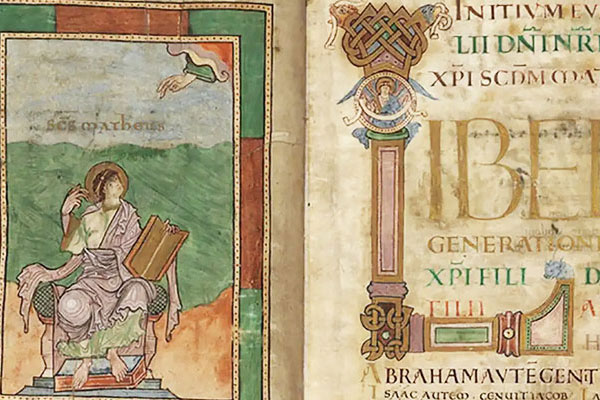 SCS MATHEUS
INITIVM EV
LII DNI IN RI
XPI SCDM MAT
LIBER
GENERATION
XPI FILI D
FILII A
H
ABRAHAM AVTE GENIT
ISAAC AUTEM CENUIT IACOB